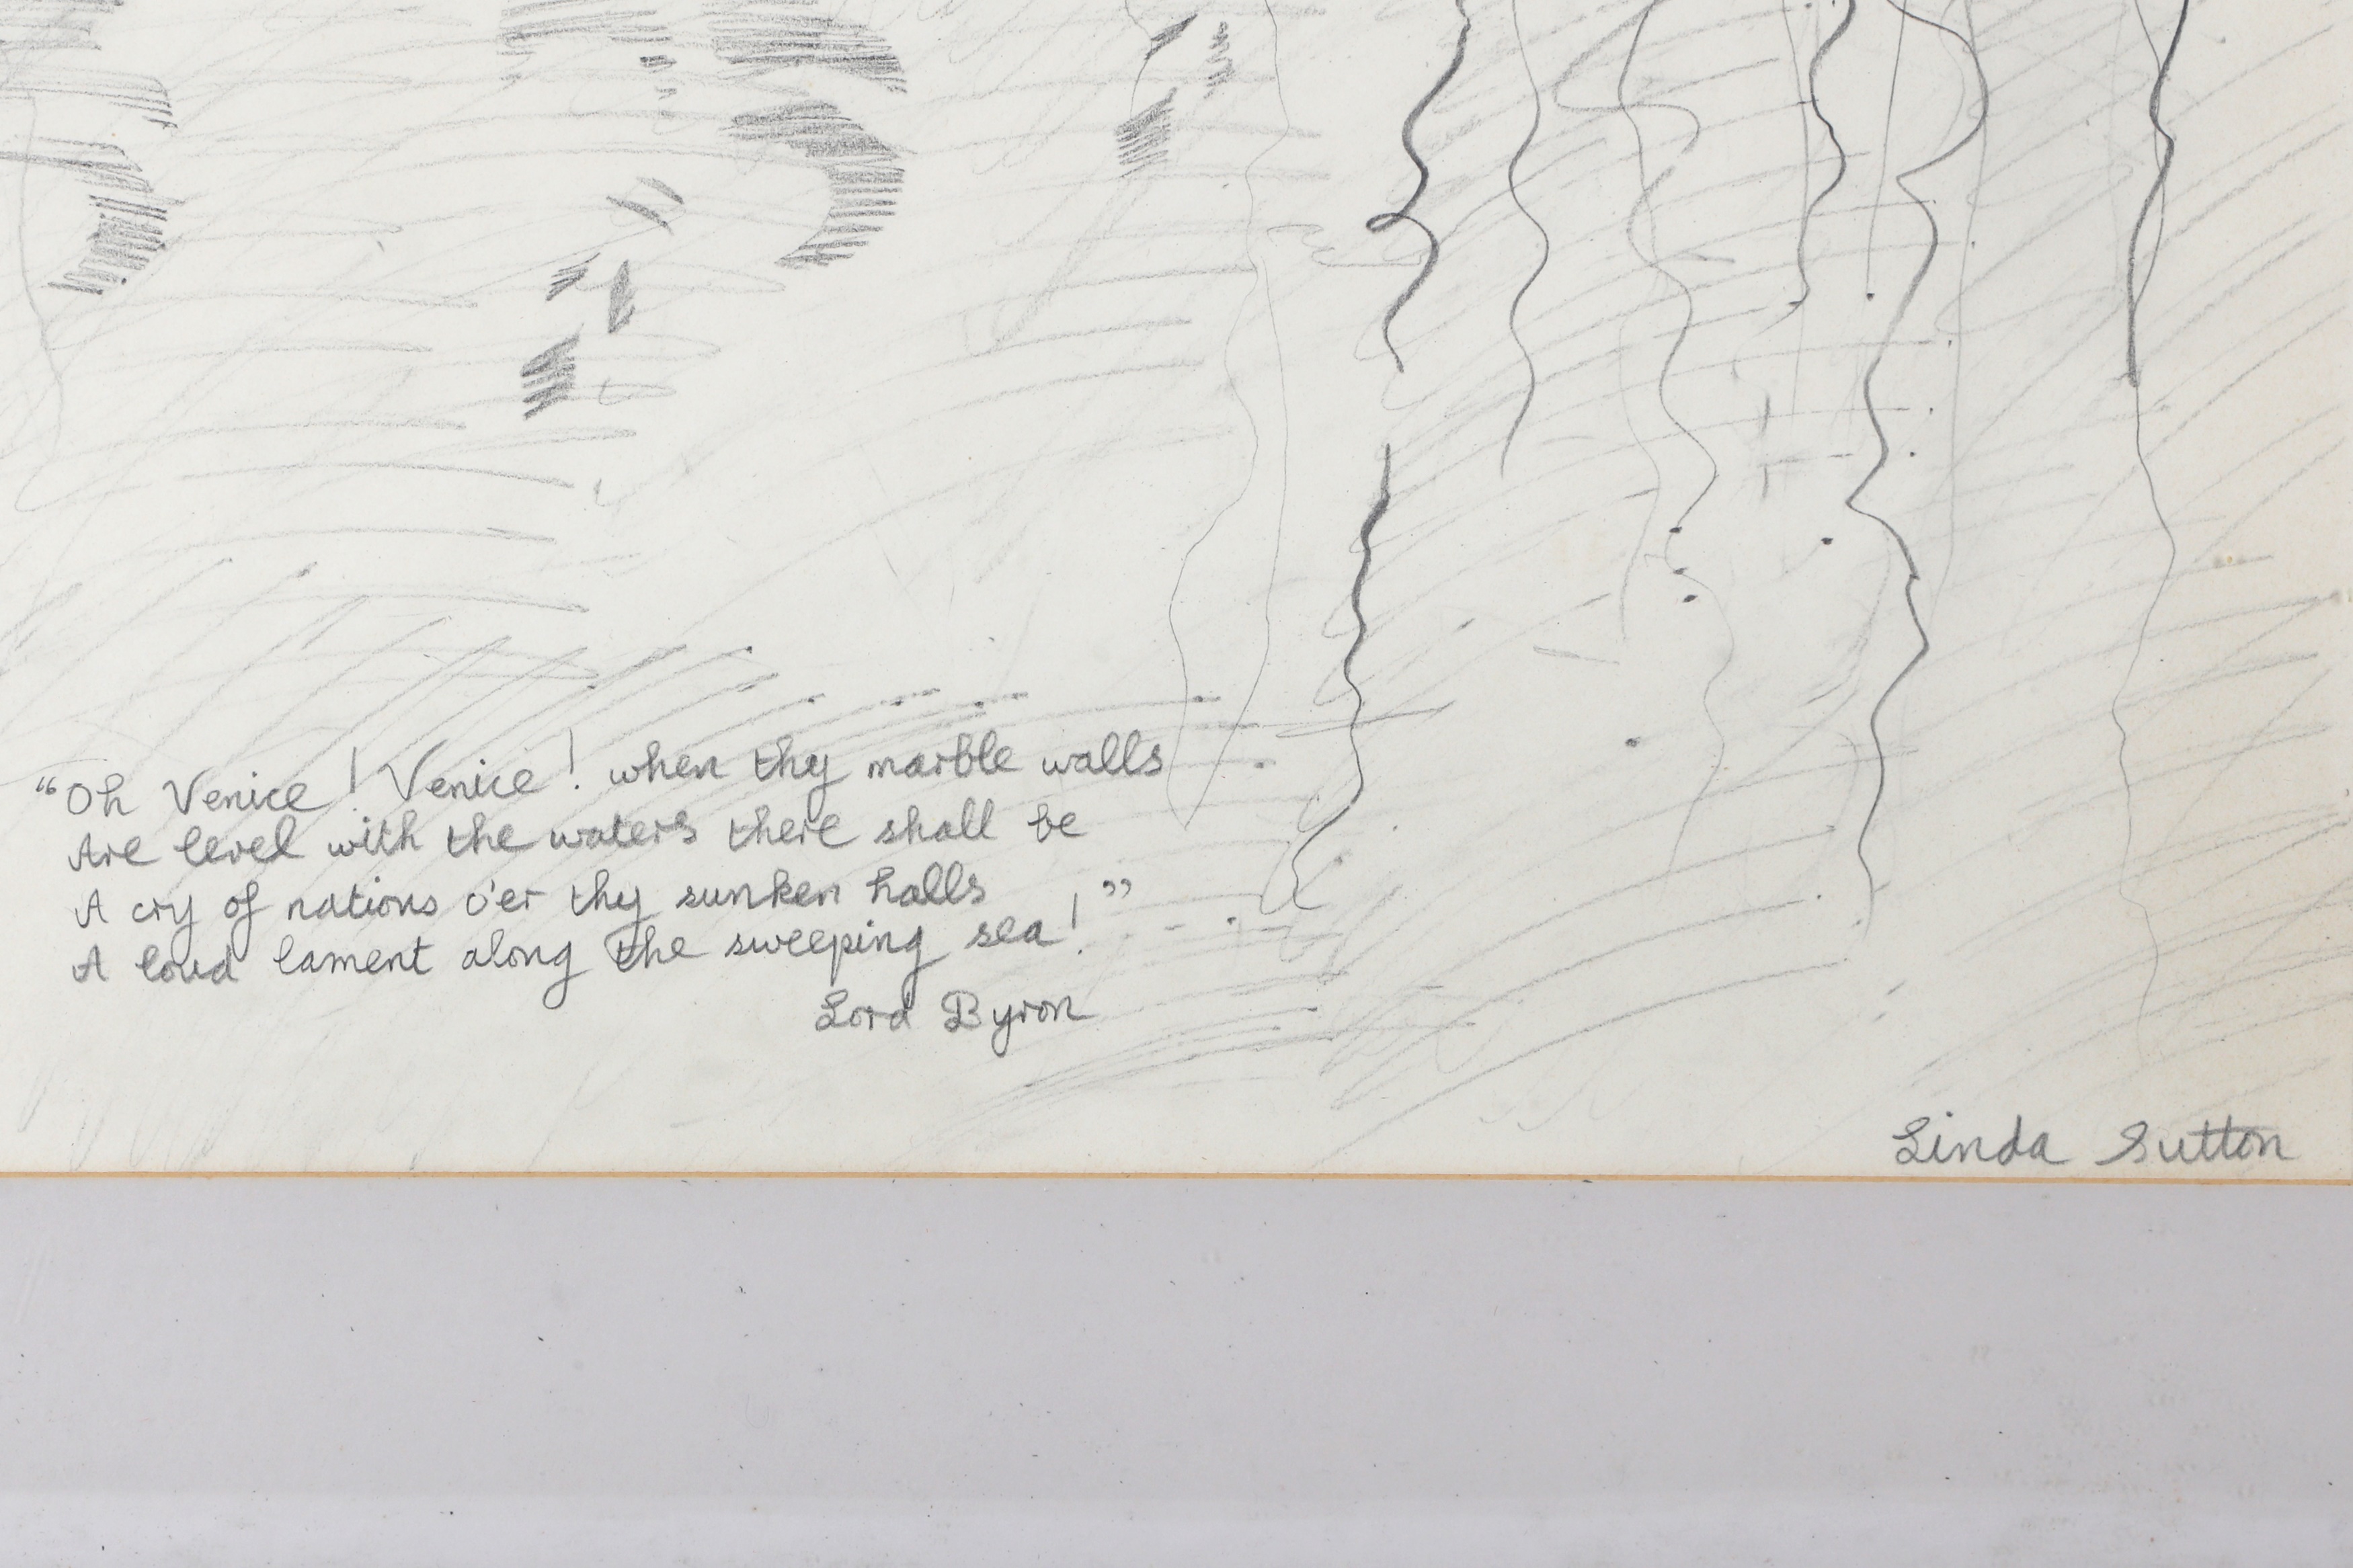 “Oh Venice! Venice! when thy marble walls
Are level with the waters there shall be
A cry of nations o'er thy sunken halls
A loud lament along the sweeping sea!”
Lord Byron
Linda Sutton